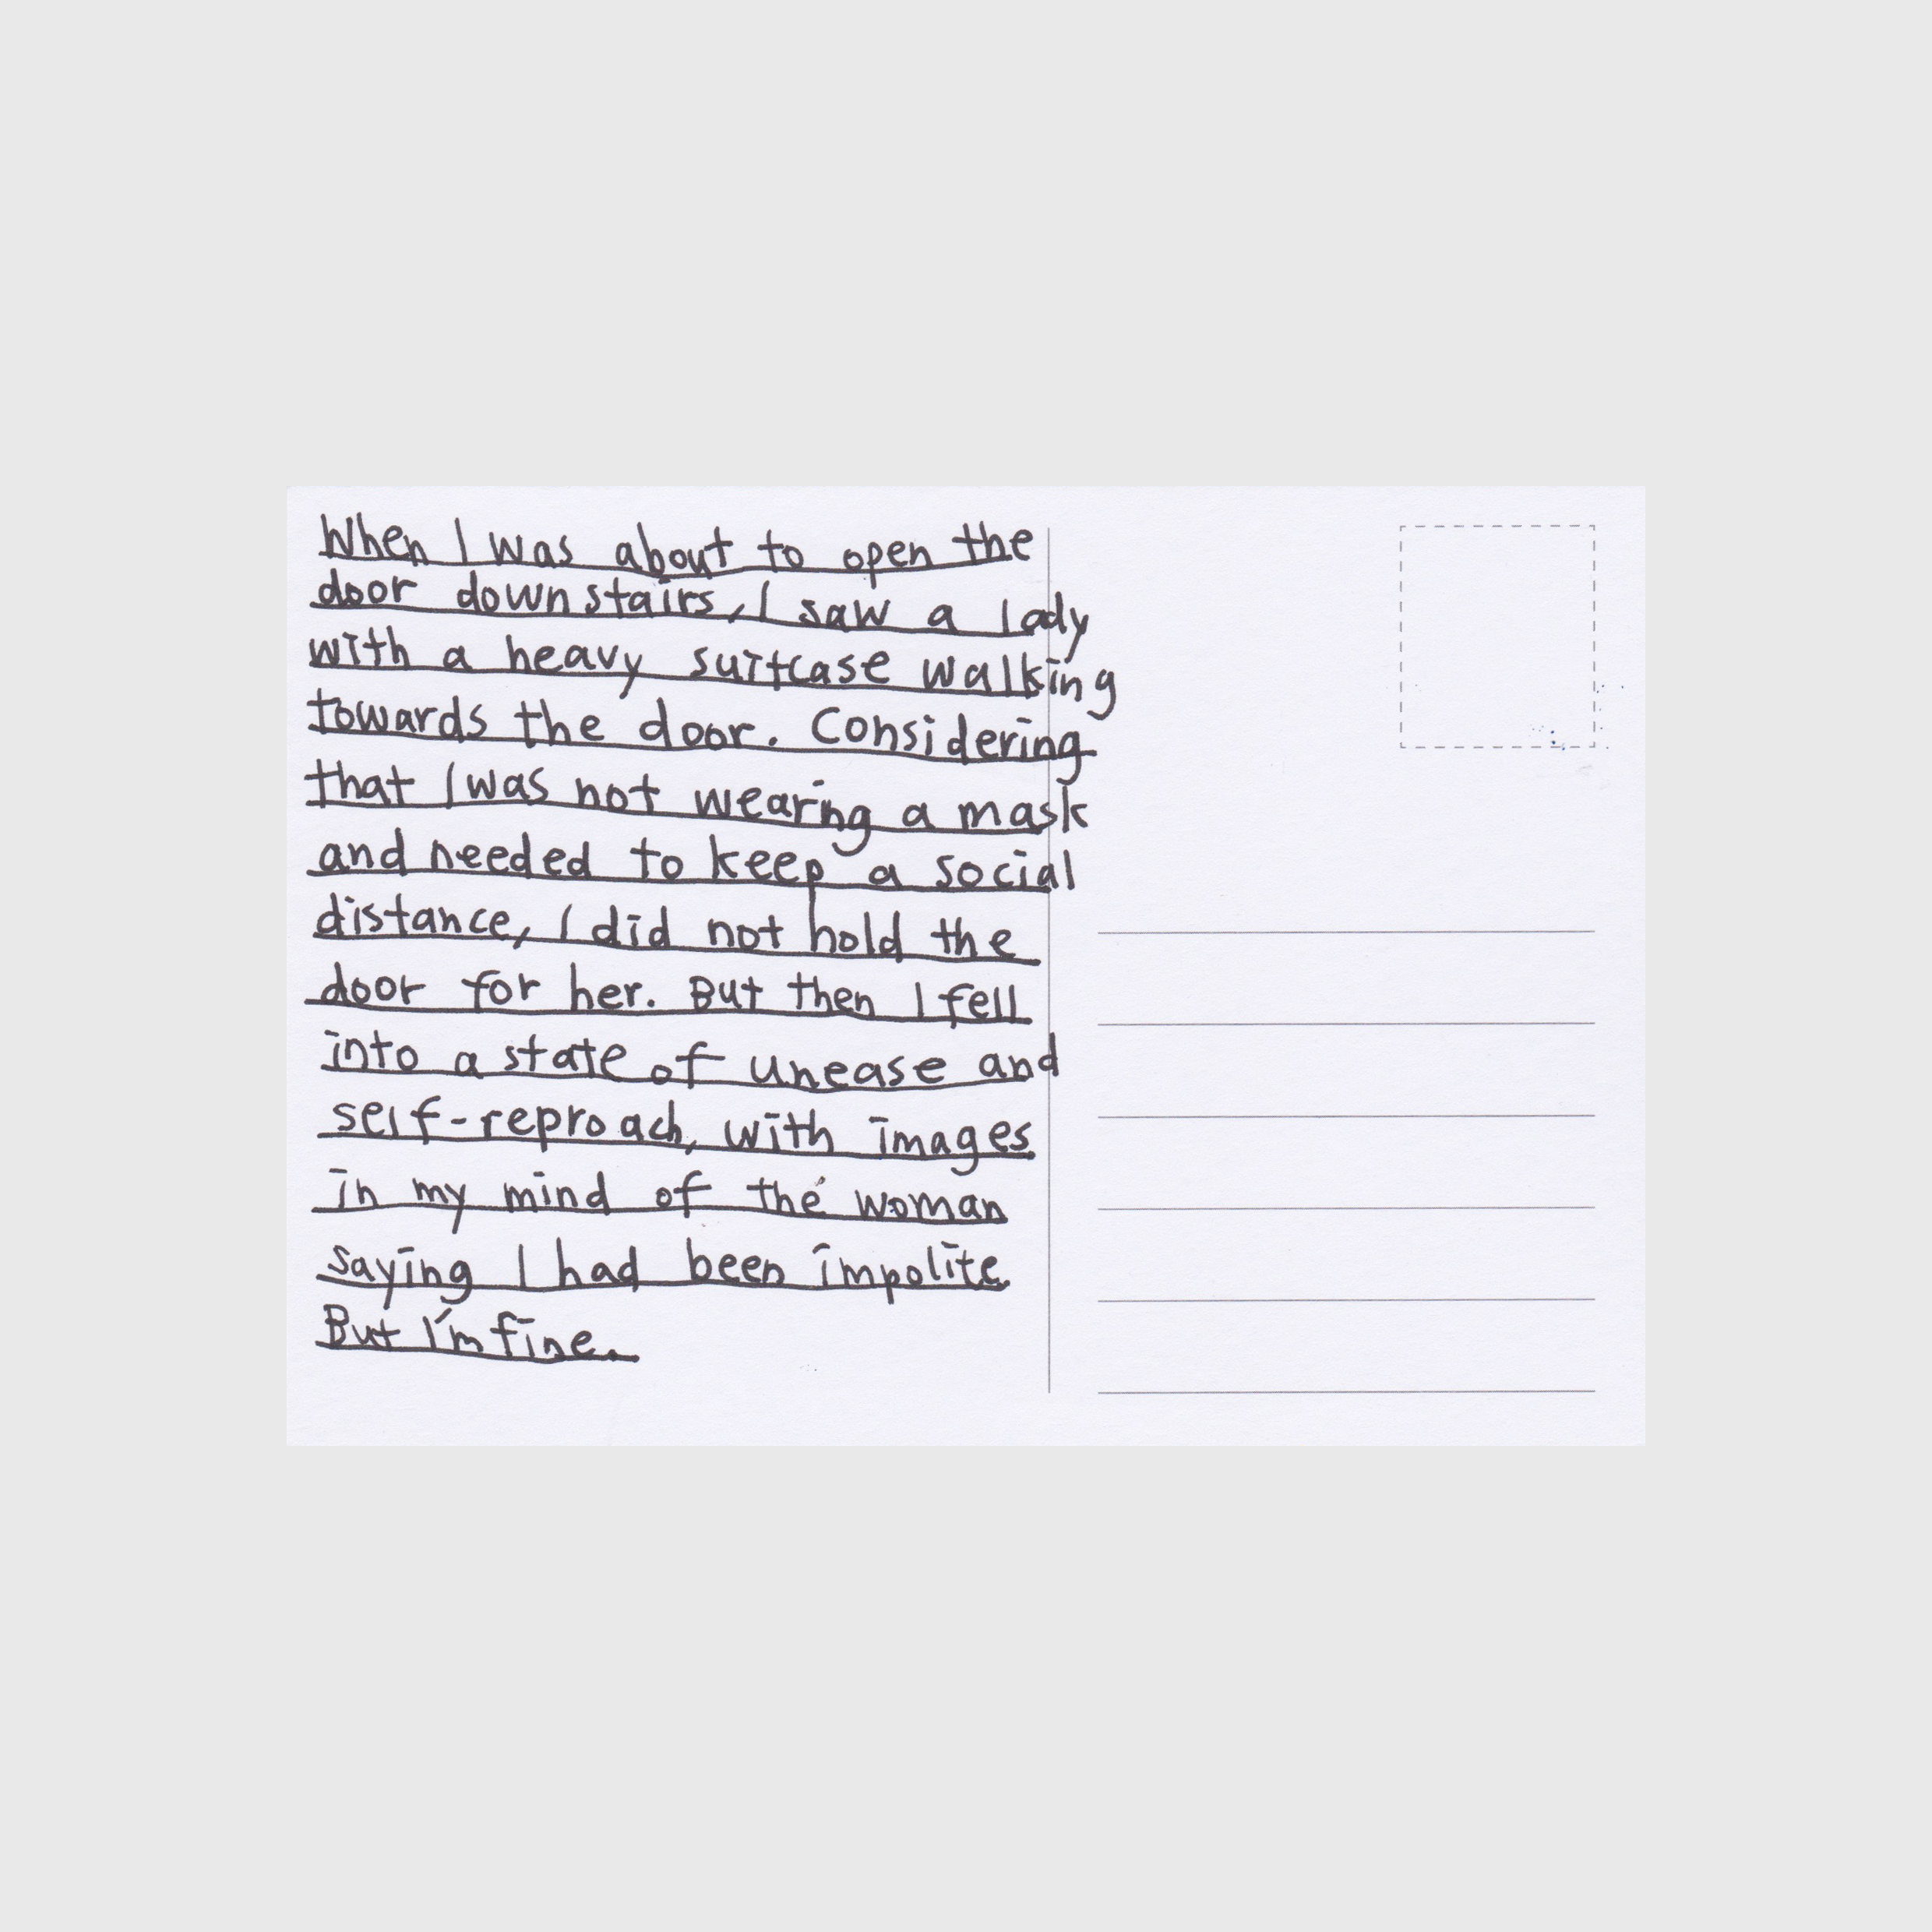 When I was about to open the
door downstairs, I saw a lady
with a heavy suitcase walking
towards the door. Considering
that I was not wearing a mask
and needed to keep a social
distance, I did not hold the
door for her. But then I fell
into a state of unease and
self-reproach, with images
in my mind of the woman
saying I had been impolite.
But I'm fine.